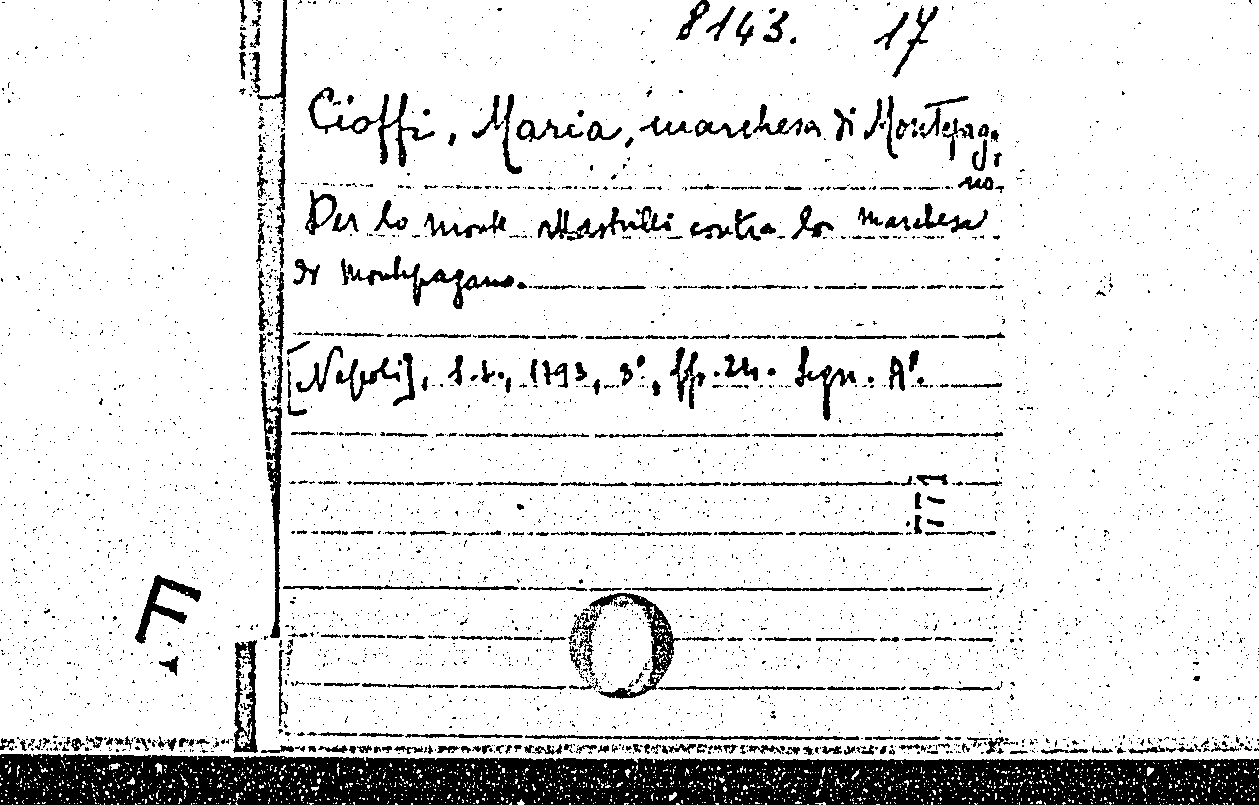 8143. 17
Cioffi, Maria, marchesa di Montepaga
no.
Per lo monte Mastrilli contra la marchesa
di Montepagano.
[Napoli], s.t., 1793, 3°, ff. 24. Segn. A°.
771
F